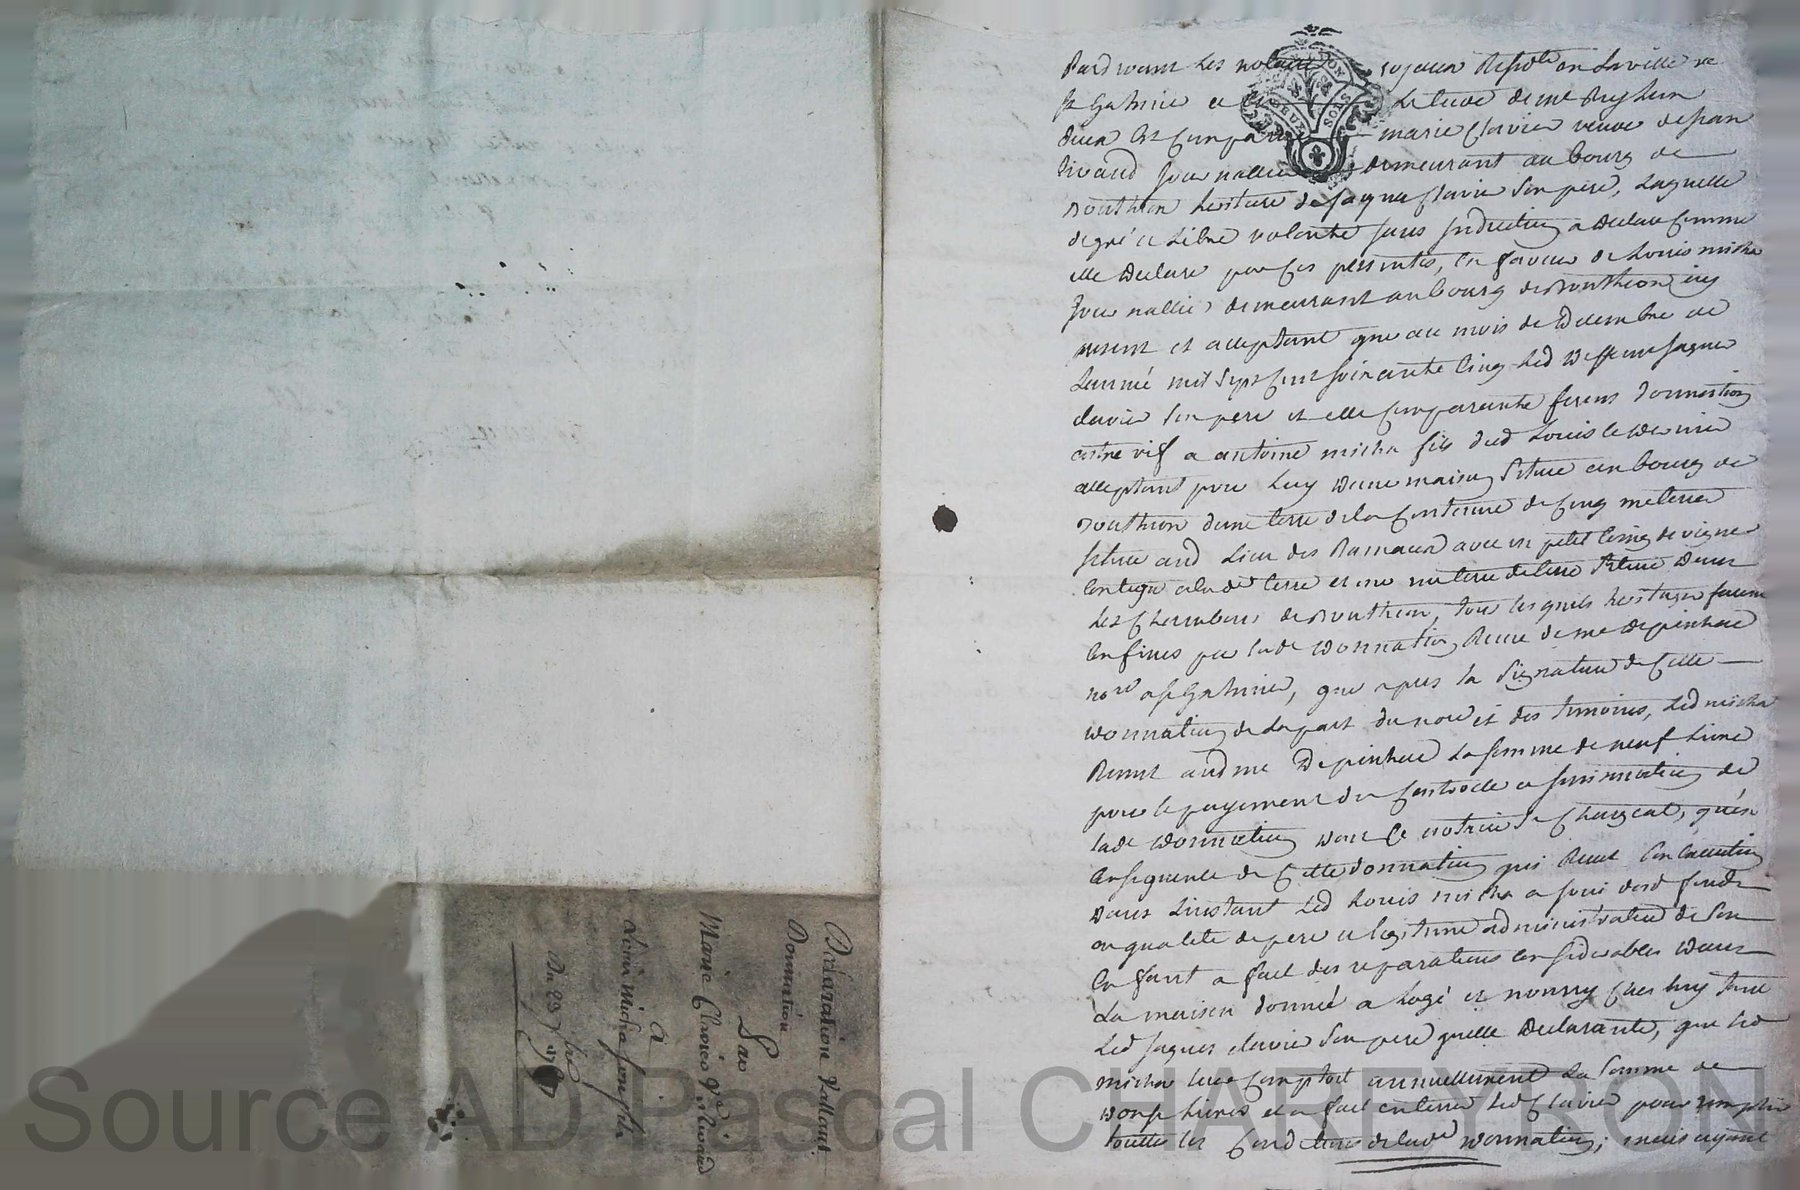 Pardevant les notaires royaux Resid.te en la ville de
St Galmier et
marie Clavier veuve de jean
Rivaud journallier demeurant au bourg de
Bouthion heritiere de Jaques Clavier son pere, laquelle
de gré et libre volonté sans induction a declaré comme
elle declare par ces presentes, en faveur de Louis micha
journallier demeurant au bourg de Bouthion icy
present et acceptant que au mois de decembre de
l'année mil sept cent soixante cinq led deffunt Jaques
clavier son pere et elle comparante firent donnation
entre vif a antoine micha fils dud Louis le dernier
acceptant pour luy d'une maison située au bourg de
Bouthion d'une terre de la contenue de cinq meterée
située aud lieu des Rameaux avec un petit coing de vigne
contigu a lad.e terre et une meterée de terre située dans
les Chambons de Bouthion, tous lesquels heritages furent
confinés par lad.e donnation Recue de me depinhac
no.re a St Galmier, que apres la signature de cette
donnation de la part du no.re et des temoins, led micha
Remit aud me Depinhac la somme de neuf livres
pour le payement du controlle et insinuation de
lad.e donnation dont ce notaire se chargeat, qu'en
consequence de cette donnation qui Recut son execution
dans l'instant led Louis micha a joui desd fonds
en qualité de pere et legitime administrateur de son
enfant a fait des reparations considerables dans
la maison donnée a logé et nourry chez luy tant
led Jaques clavier son pere qu'elle declarante, que led
micha leur comptoit annuellement la somme de
douze livres et a fait enterré led Clavier pour remplir
touttes les conditions de lad.e donnation; mais ayant
Declaration Vallant
Donnation
Par
Marie Clavier V.e Rivaud
a
Louis Micha son fils
Du 23 7bre 1787
Source AD Pascal CHAREYRON